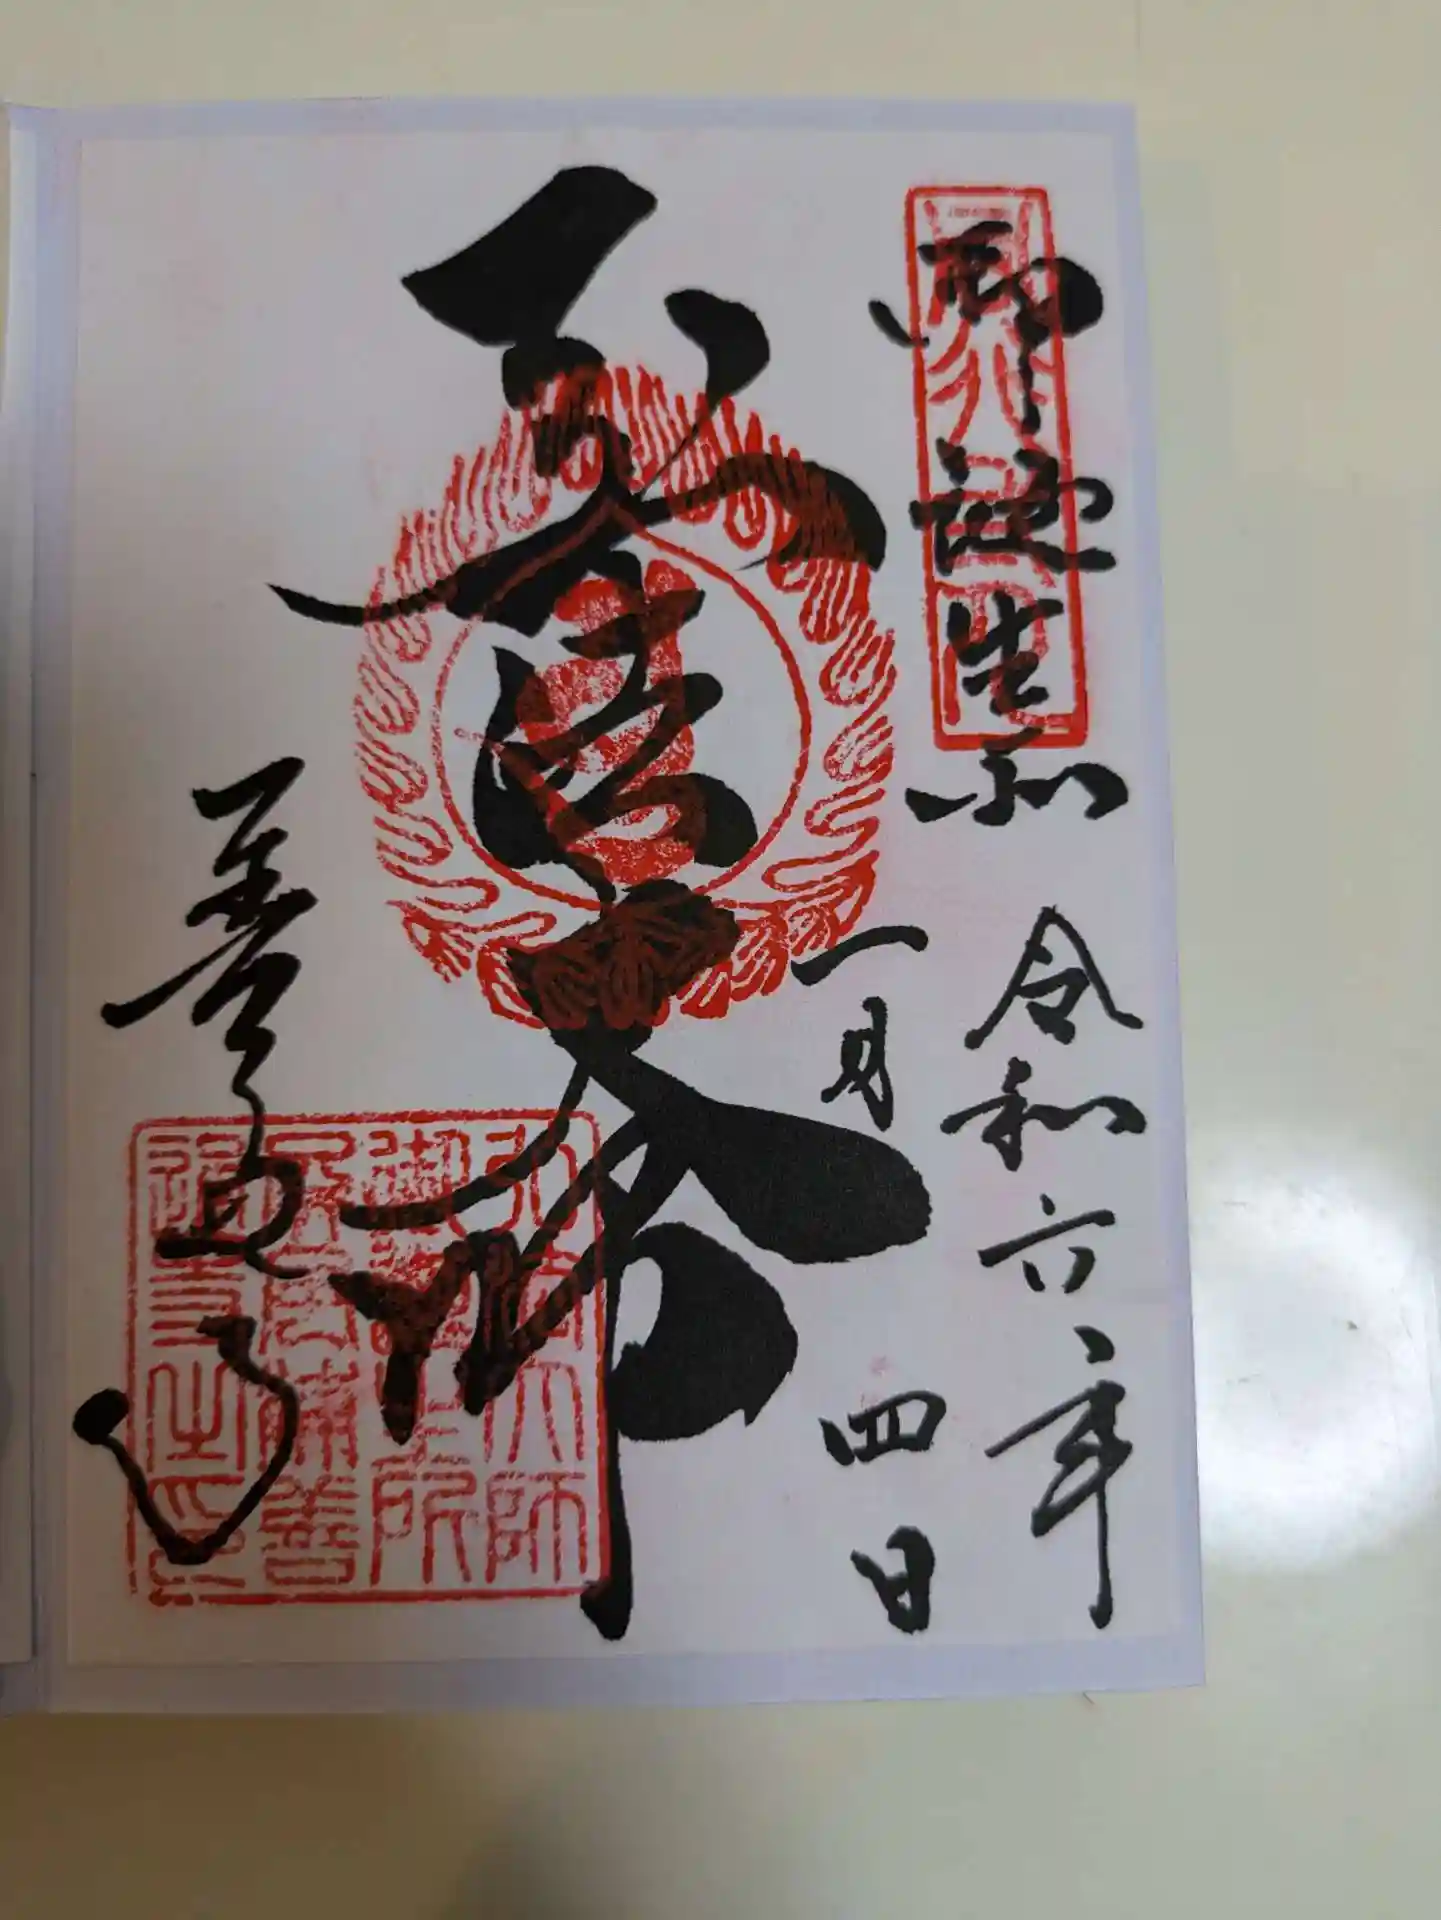 御誕生所
令和六年
一月四日
弘法大師
善通寺
弘法大師
御誕生所
屏風浦善
通寺之印